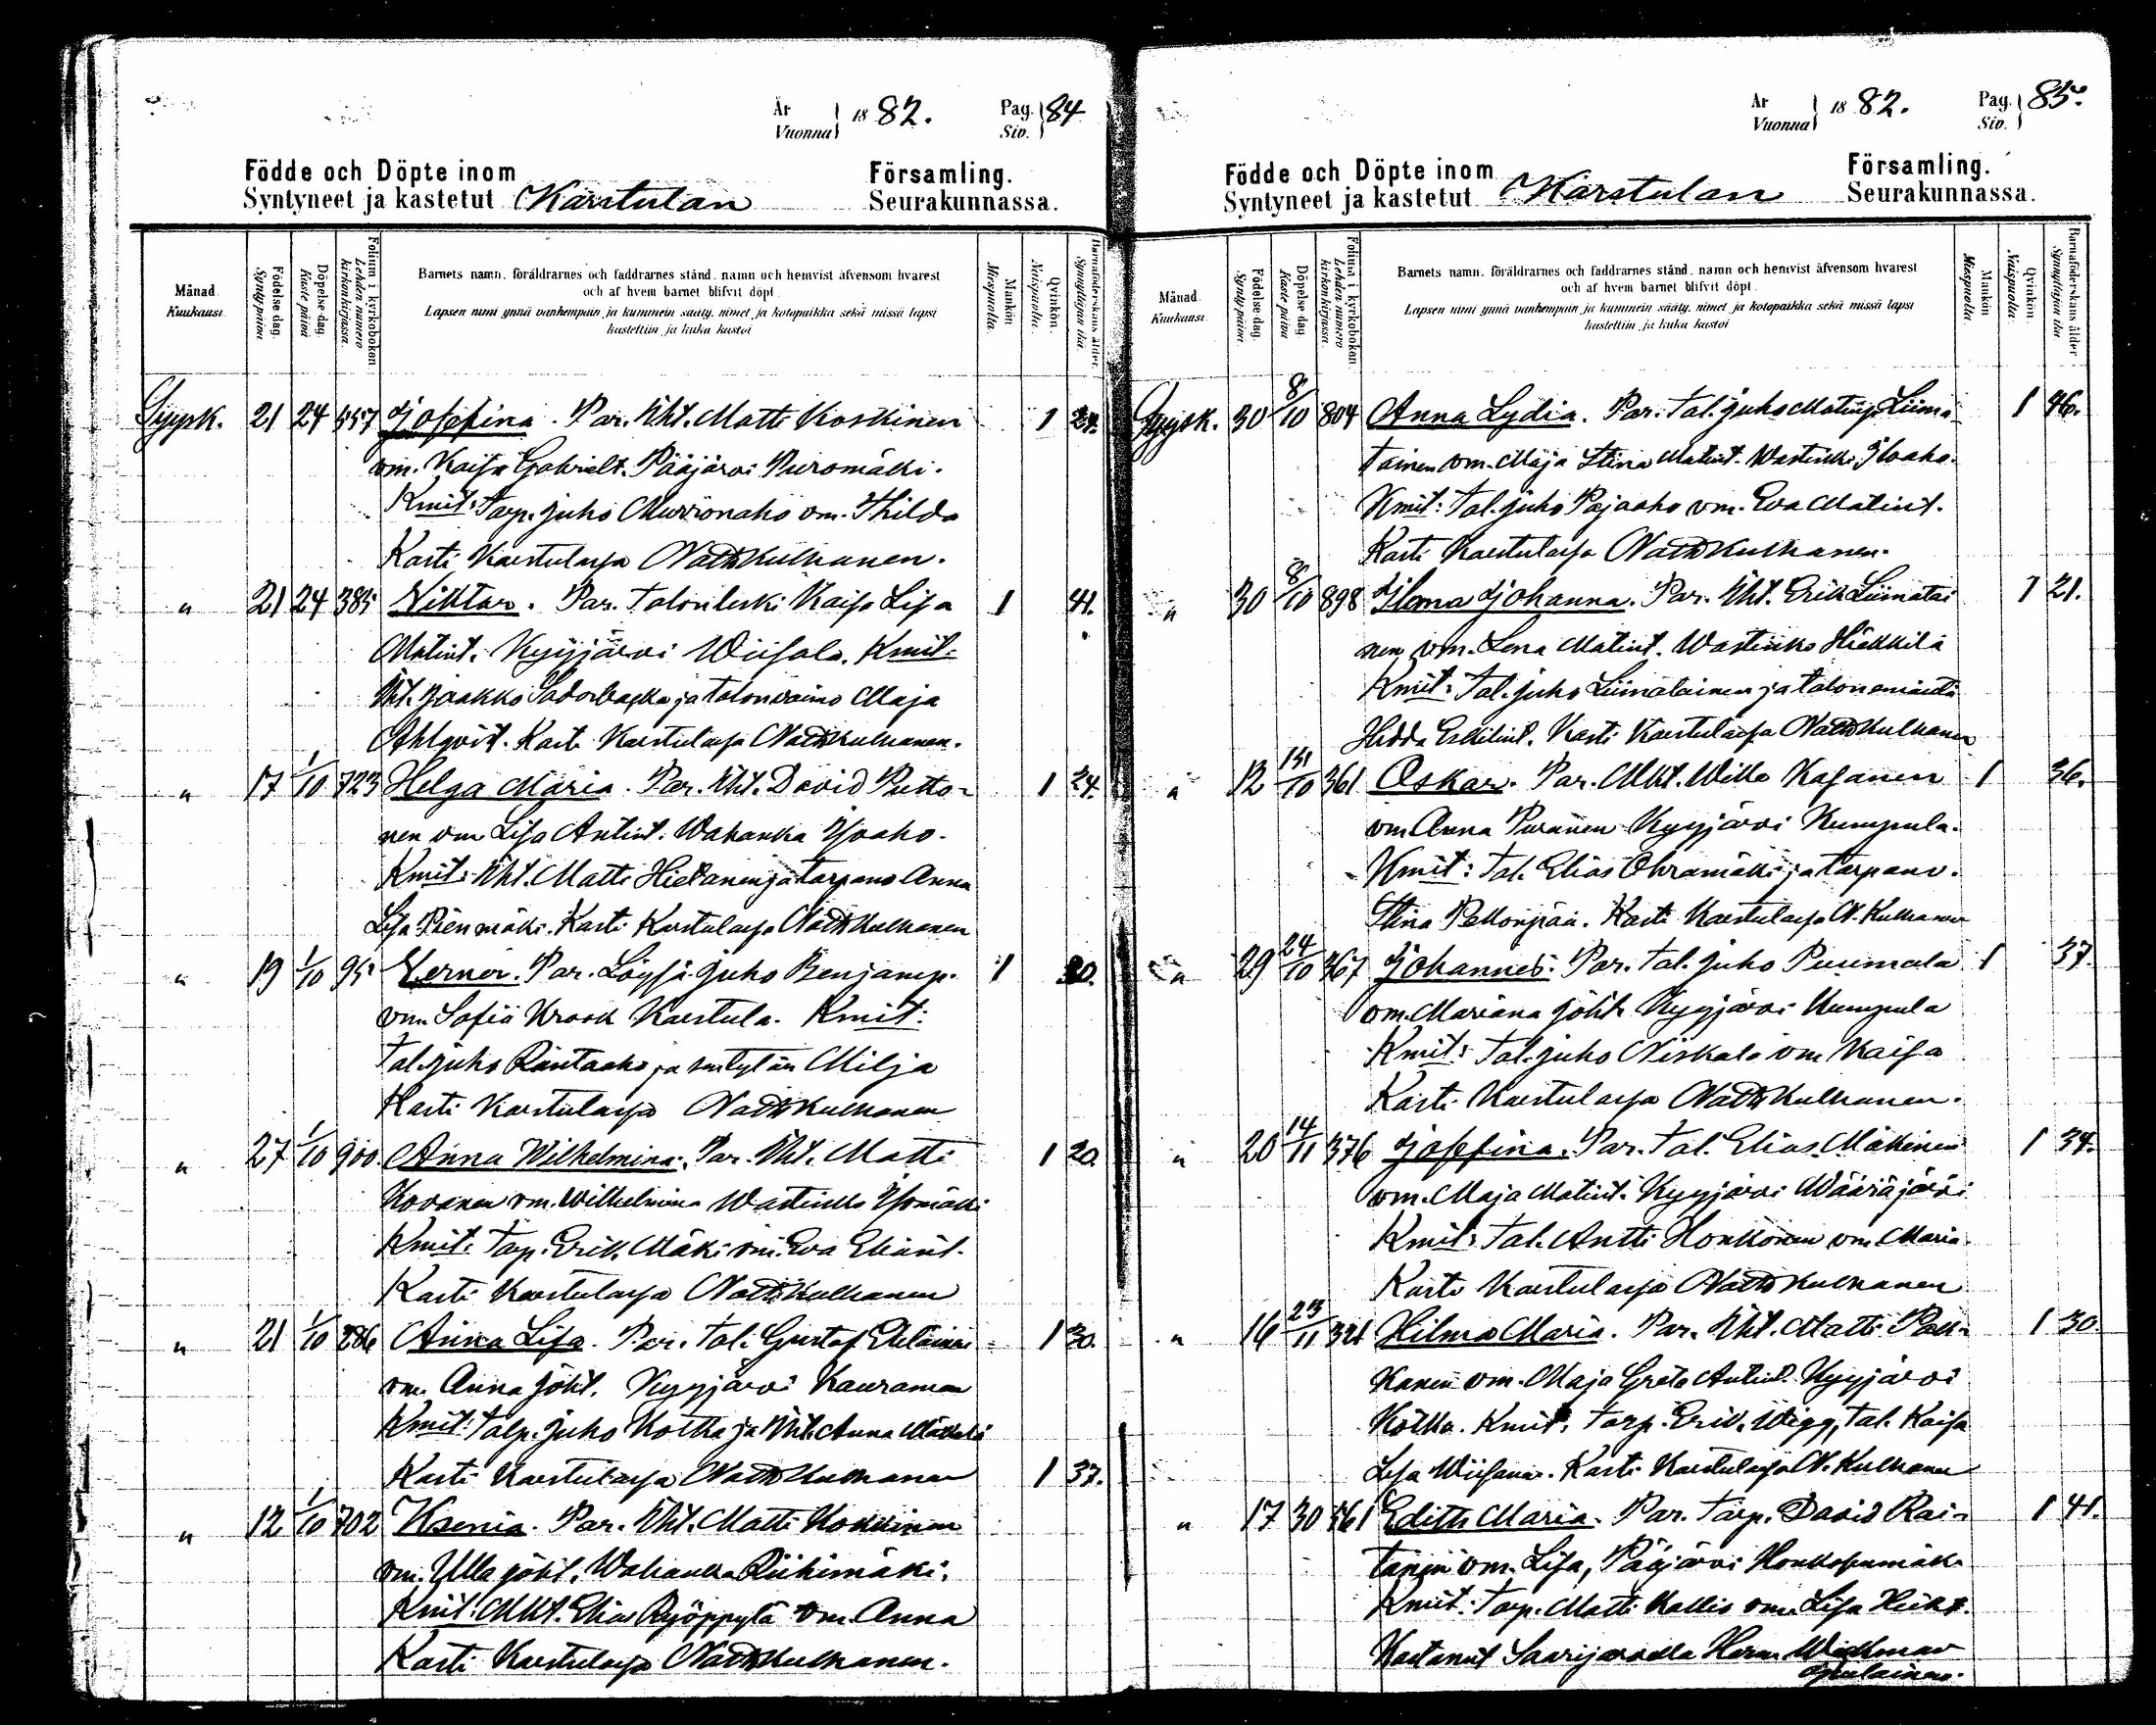 År Vuonna 1882. Pag. Siv. 84
Födde och Döpte inom Församling.
Syntyneet ja kastetut Karstulan Seurakunnassa.
Månad. Kuukausi.
Födelse dag. Synty päivä
Döpelse dag. Kaste päivä
Folium i kyrkoboken. Lehden numero kirkonkirjassa.
Barnets namn, föräldrarnes och faddrarnes stånd, namn och hemvist äfvensom hvarest
och af hvem barnet blifvit döpt.
Lapsen nimi ynnä vanhempain ja kummein sääty, nimet ja kotopaikka sekä missä lapsi
kastettiin ja kuka kastoi
Mankön Miespuolia.
Qvinkön. Naispuolia.
Barnaföderskans ålder. Synnyttäjän ikä.
Syysk. 21 24 557 Josefina. Par. Itt. Matti Koskinen 1 24.
vm. Kaisa Gabrielt. Pääjärvi Puromäki.
Kmit: Torp. Juho Murronaho vm. Hilda
Kasti Karstulassa Math Kulhanen.
" 21 24 385 Viktor. Par. Talonleski Kaisa Lisa 1 41.
Matint. Kyyjärvi Wiisala. Kmit:
Itt. Jaakko ja talonvaimo Maja
Ahlqvist. Kasti Karstulassa Math Kulhanen.
" 17 1/10 723 Helga Maria. Par. Itt. David Putto- 1 24.
nen vm Lisa Antint. Wahanka Isoaho.
Kmit: Itt. Matti Hietanen ja torpanv Anna
Lisa Pienmäki. Kasti Karstulassa Math Kulhanen
" 19 1/10 95 Verner. Par. Löysä Juho Benjamp. 1 30.
vm. Sofia Krook Karstula. Kmit:
Tal. Juho Rantaaho ja Milja
Kasti Karstulassa Math Kulhanen
" 27 1/10 900 Anna Wilhelmina. Par. Itt. Matti 1 20.
Kovanen vm. Wilhelmina Wastinki Isomäki
Kmit: Torp. Erik Mäki vm. Eva Eliant.
Kasti Karstulassa Math Kulhanen
" 21 1/10 286 Anna Lisa. Par. Tal. Gustaf 1 30.
vm. Anna Joht. Kyyjärvi Kauraman
Kmit: Talp. Juho Kotka ja Itt. Anna
Kasti Karstulassa Math Kulhanen 1 37.
" 12 1/10 702 Ksenia. Par. Itt. Matti Kokkinen
vm. Ulla Joht. Wahanka Riihimäki.
Kmit: Mkt. Elias Ryöppylä vm. Anna
Kasti Karstulassa Math Kulhanen.
År Vuonna 1882. Pag. Siv. 85.
Födde och Döpte inom Församling.
Syntyneet ja kastetut Karstulan Seurakunnassa.
Månad. Kuukausi.
Födelse dag. Synty päivä.
Döpelse dag. Kaste päivä
Folium i kyrkoboken. Lehden numero kirkonkirjassa.
Barnets namn, föräldrarnes och faddrarnes stånd, namn och hemvist äfvensom hvarest
och af hvem barnet blifvit döpt.
Lapsen nimi ynnä vanhempain ja kummein sääty, nimet ja kotopaikka sekä missä lapsi
kastettiin ja kuka kastoi
Mankön Miespuolia
Qvinkön. Naispuolia.
Barnaföderskans ålder Synnyttäjän ikä
Syysk. 30 8/10 804 Anna Lydia. Par. Tal. Juho Matinp. Liima- 1 46.
tainen vm. Maja Stina Matint. Wastinki Iloaho.
Kmit: Tal. Juho Pajaaho vm. Eva Matint.
Kasti Karstulassa Math Kulhanen.
" 30 8/10 898 Ilma Johanna. Par. Itt. Erik Liimatai 1 21.
nen vm. Lena Matint. Wastinki Heikkilä
Kmit: Tal. Juho Liimatainen ja talonemäntä
Hedda Erkint. Kasti Karstulassa Math Kulhanen
" 12 /10 361 Oskar. Par. Mkt. Wille Kasanen 1 36.
vm. Anna Puranen Kyyjärvi Kumpula.
Kmit: Tal. Elias Ohramäki ja torpanv.
Stina Pekonpää. Kasti Karstulassa M. Kulhanen
" 29 24/10 367 Johannes. Par. Tal. Juho Puumala 1 37.
vm. Mariana Joht. Kyyjärvi Kumpula
Kmit: Tal. Juho Niskala vm Kaisa
Kasti Karstulassa Math Kulhanen.
" 20 14/11 376 Josefina. Par. Tal. Elias Mäkinen 1 34.
vm. Maja Matint. Kyyjärvi Wääräjärvi
Kmit: Tal. Antti Honkonen vm. Maria
Kasti Karstulassa Math Kulhanen
" 16 23/11 321 Hilma Maria. Par. Itt. Matti Pek- 1 30.
kanen vm. Maja Greta Antint. Kyyjärvi
Kotka. Kmit: Torp. Erik Wigg, Tal. Kaisa
Lisa Wiisanen. Kasti Karstulassa M. Kulhanen
" 17 30 761 Edith Maria. Par. Torp. David Rai- 1 41.
tanen vm. Lisa, Pääjärvi
Kmit: Torp. Matti Kallio vm. Lisa Heikt.
Kastanut Saarijärvellä Herra Wallmar
apulainen.